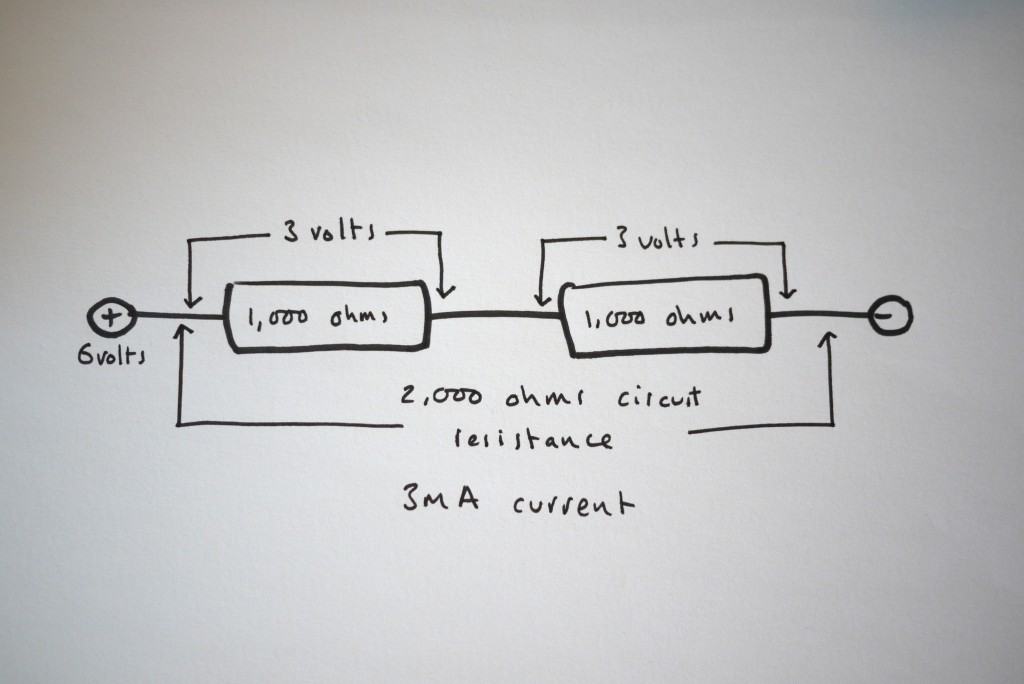 3 volts
3 volts
+
1,000 ohms
1,000 ohms
-
6volts
2,000 ohms circuit
resistance
3mA current